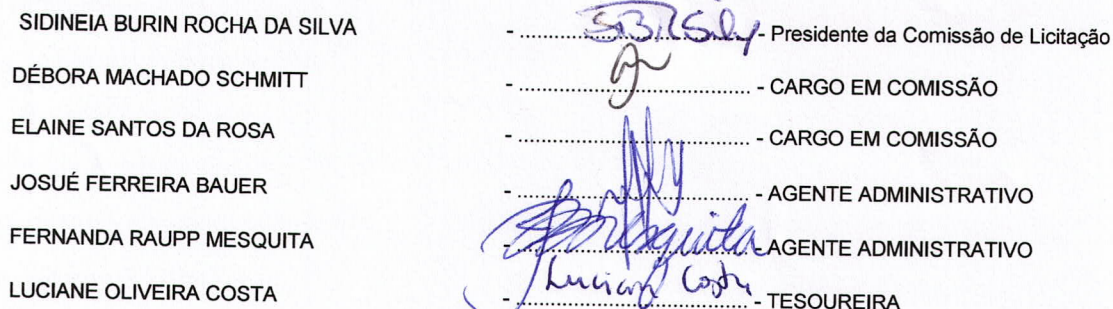 SIDINEIA BURIN ROCHA DA SILVA - SBRSilva - Presidente da Comissão de Licitação
DÉBORA MACHADO SCHMITT - - CARGO EM COMISSÃO
ELAINE SANTOS DA ROSA - - CARGO EM COMISSÃO
JOSUÉ FERREIRA BAUER - - AGENTE ADMINISTRATIVO
FERNANDA RAUPP MESQUITA - Mesquita - AGENTE ADMINISTRATIVO
LUCIANE OLIVEIRA COSTA - Luciane Costa - TESOUREIRA